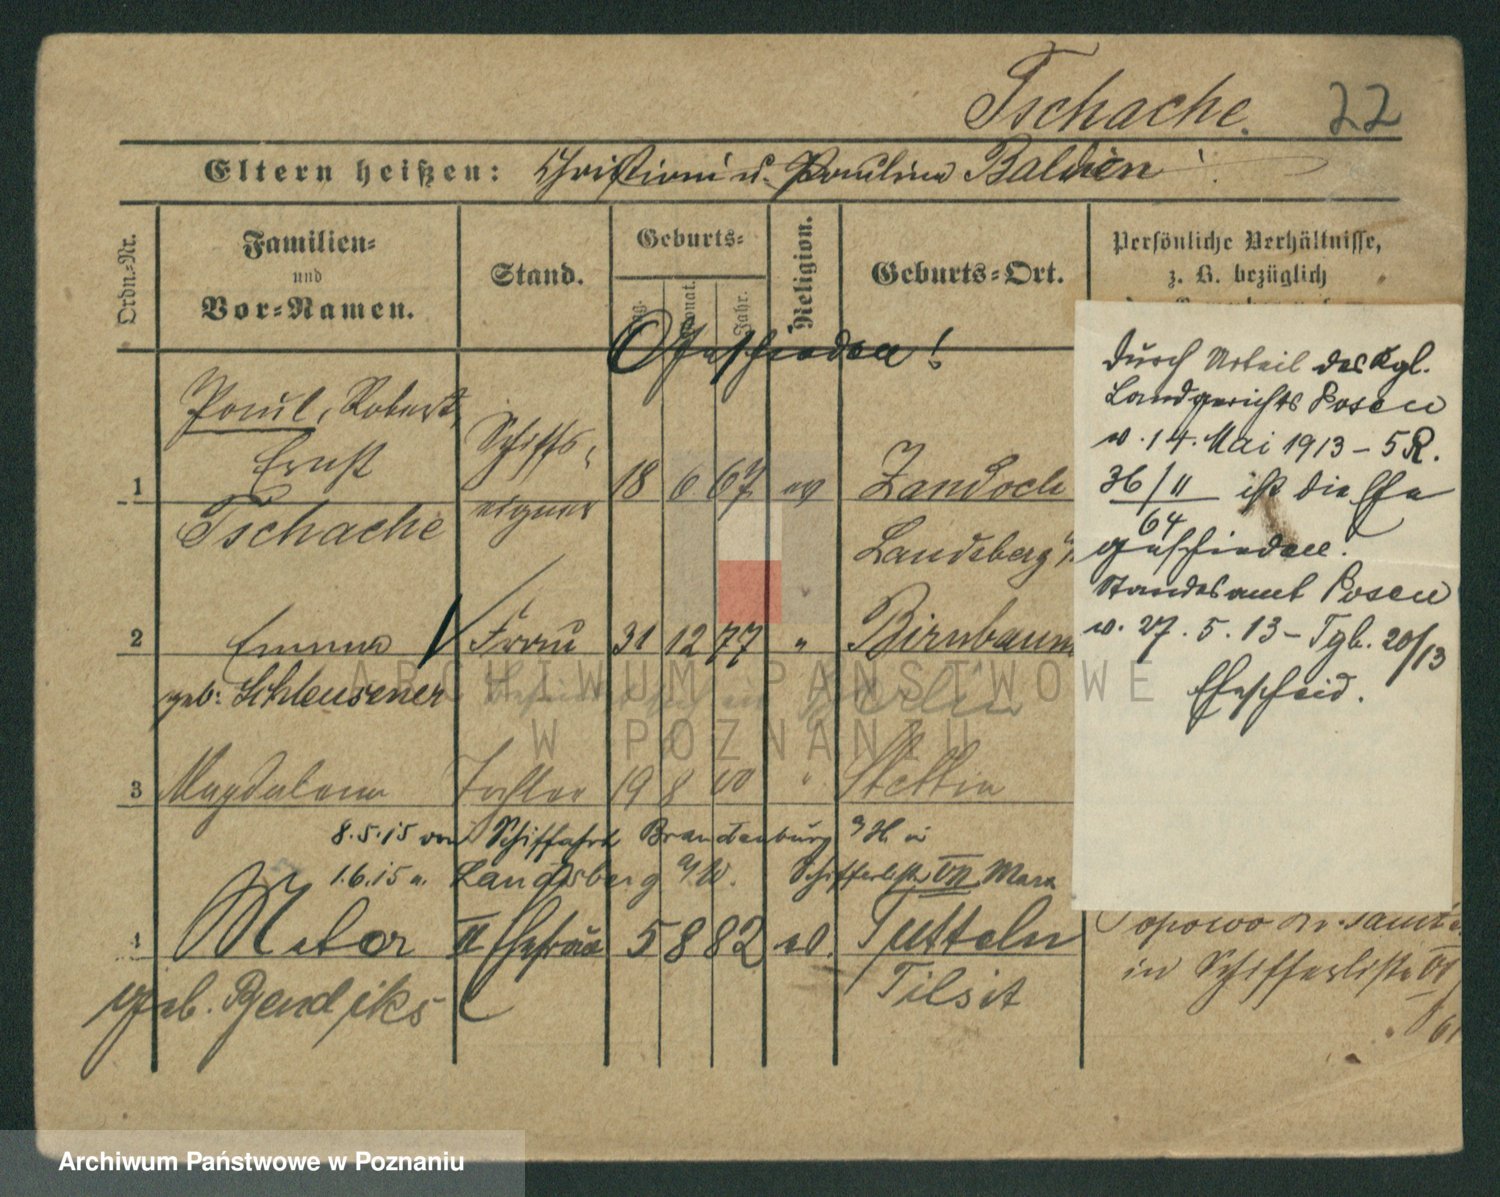 Tschache. 22
Eltern heißen: Christian u. Pauline Baldien
Ordn.-Nr.
Familien-
und
Vor-Namen.
Stand.
Geburts-
Tag.
Monat.
Jahr.
Religion.
Geburts-Ort.
Persönliche Verhältnisse,
z. B. bezüglich
Geschieden!
1 Paul, Robert, Ernst Tschache Schiffs- eigner 18 6 67 ev Zandoch
Landsberg
2 Emma Frau 31 12 77 " Birnbaum
geb: Schleusener Berlin
3 Magdalena Tochter 19 8 00 " Stettin
8.5.15 von Schiffahrt Brandenburg a/H. in
1.6.15 n. Landsberg a/W. Schifferliste VII Marx
4 Meta II Ehefrau 5 8 82 ev. Tutteln
geb. Bendjiks Tilsit
Durch Urteil des Kgl.
Landgerichts Posen
v. 14. Mai 1913 – 5 R.
36/11 ist die Ehe
64
geschieden.
Standesamt Posen
v. 27. 5. 13 – Tgb. 20/13
Ehescheid.
in Schifferliste VI
61
ARCHIWUM PAŃSTWOWE
W POZNANIU
Archiwum Państwowe w Poznaniu